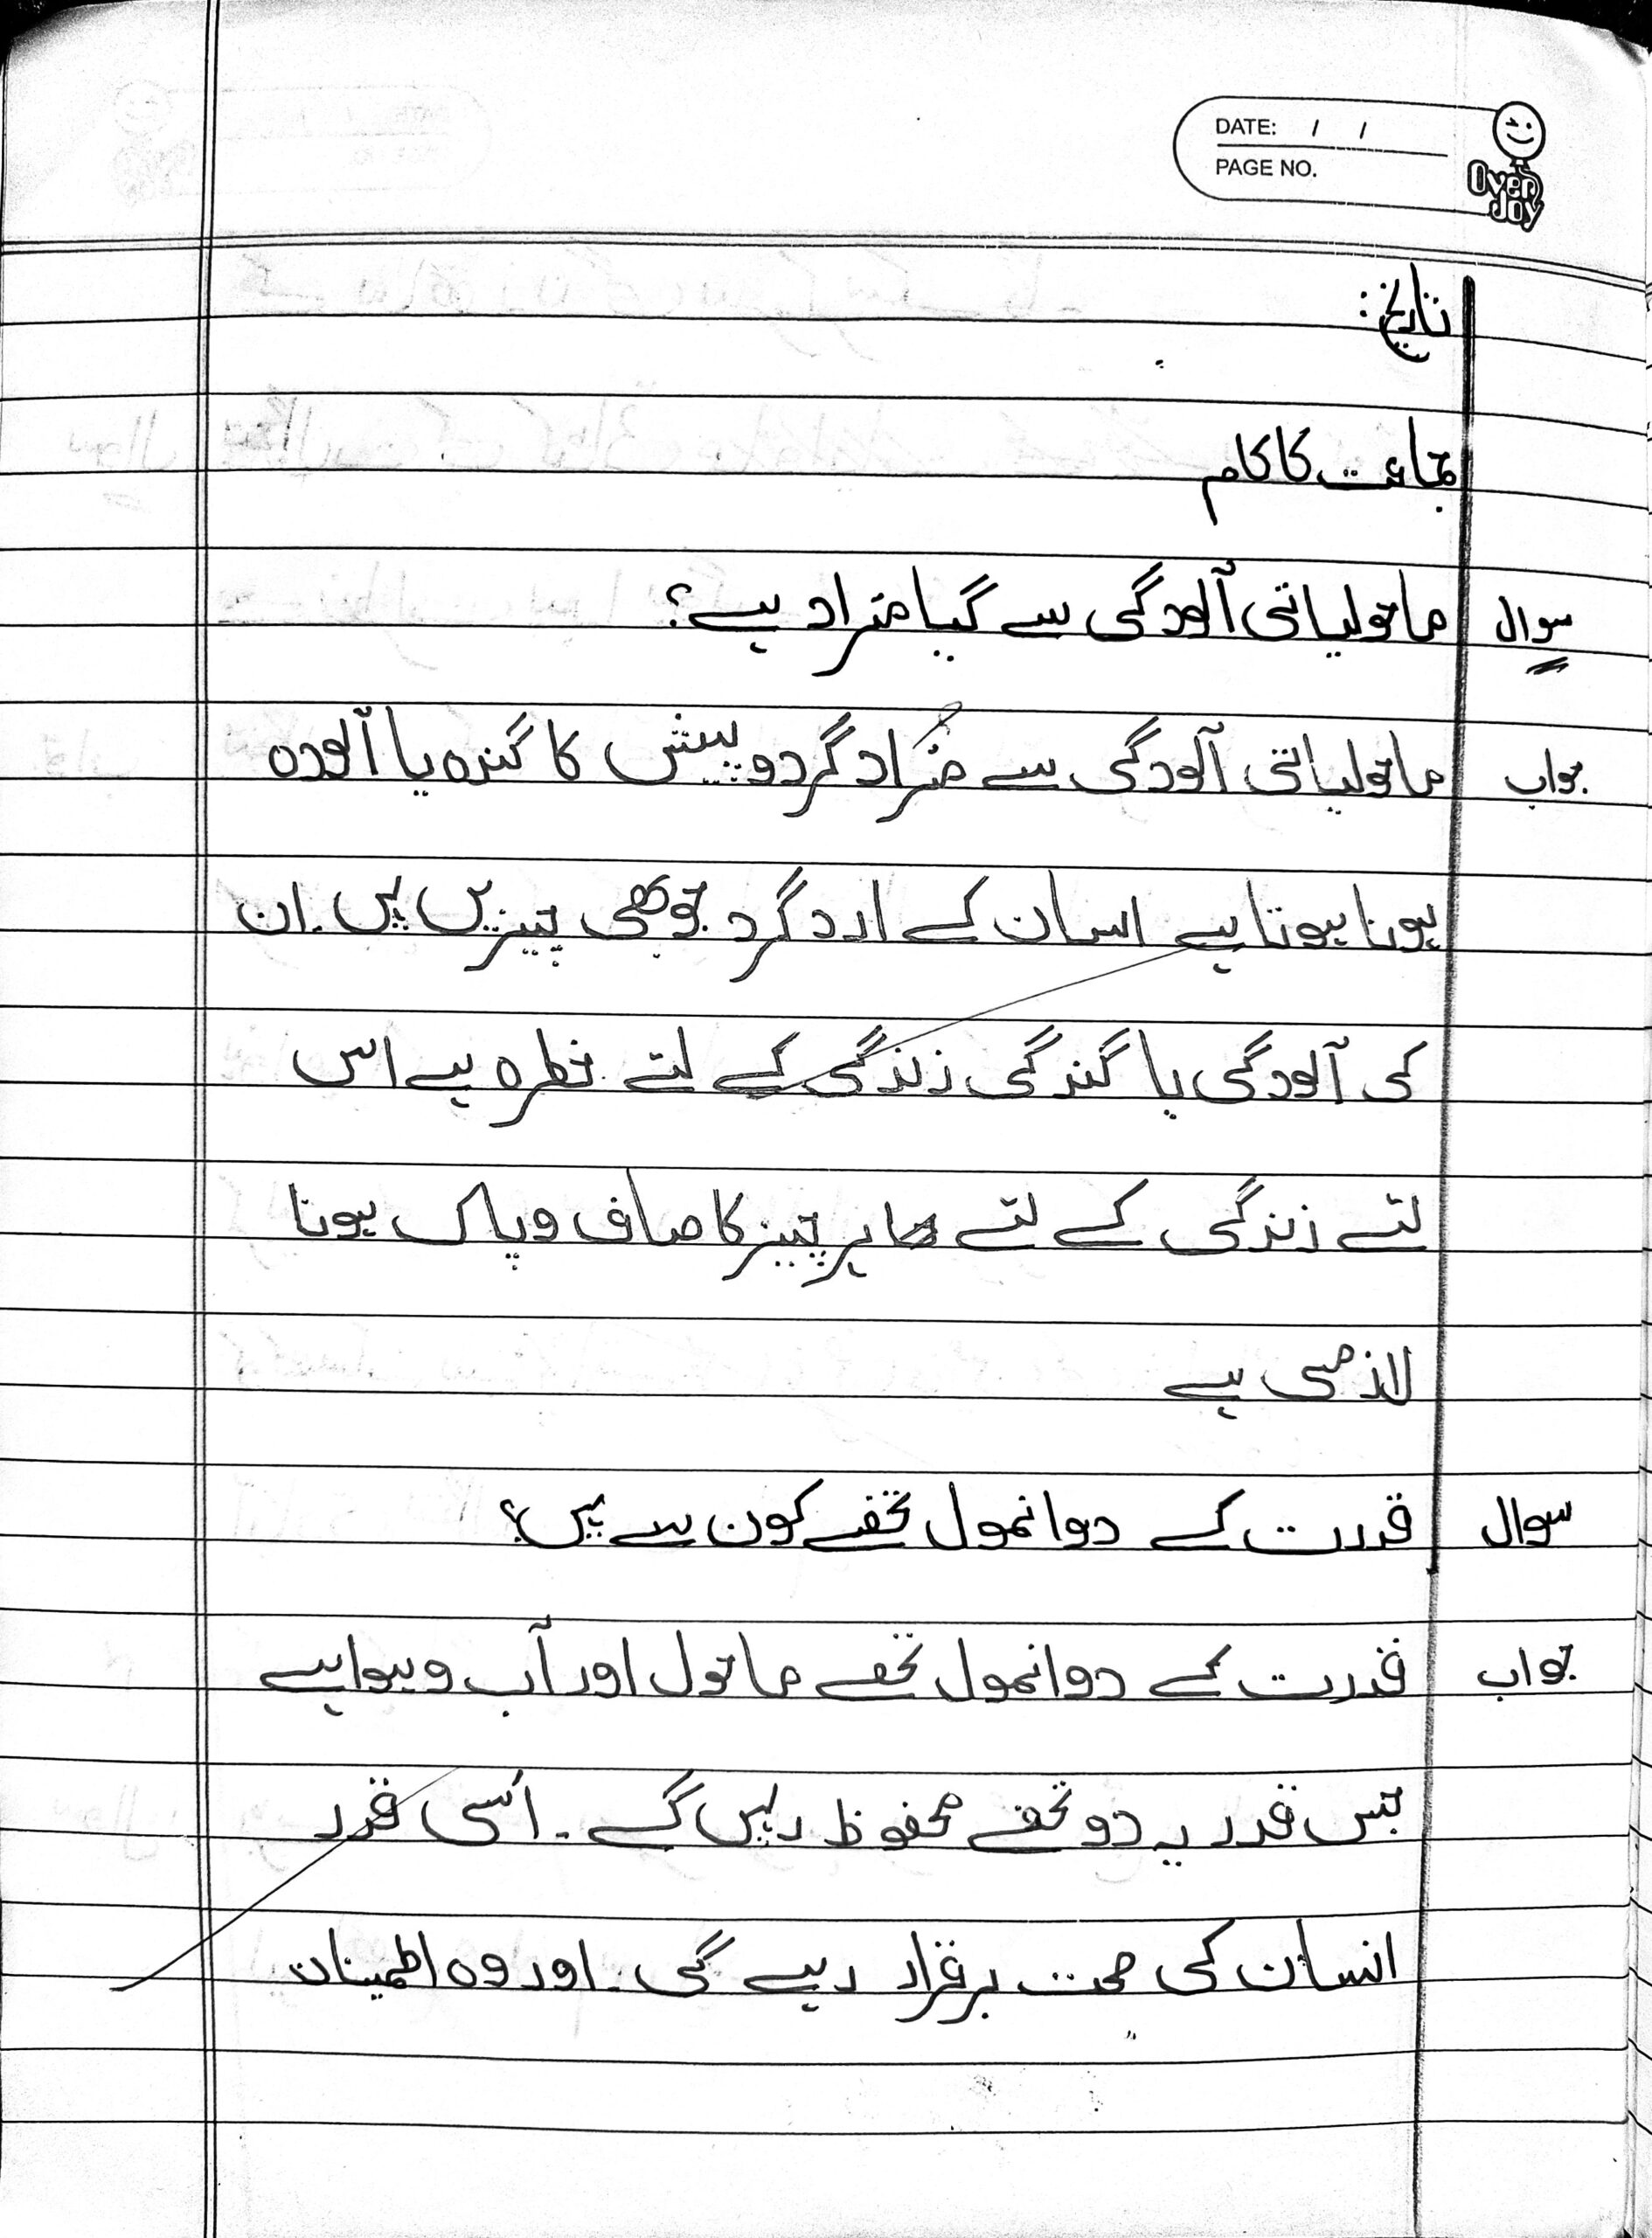 DATE: / /
PAGE NO.
Over Joy
تاریخ:
جماعت کا کام
سوال ماحولیاتی آلودگی سے کیا مراد ہے؟
جواب ماحولیاتی آلودگی سے مُراد گردوپیش کا گندہ یا آلودہ
ہونا ہوتا ہے انسان کے ارد گرد جو بھی چیزیں ہیں۔ ان
کی آلودگی یا گندگی زندگی کے لئے خطرہ ہے اس
لئے زندگی کے لئے ہر چیز کا صاف و پاک ہونا
لاذمی ہے
سوال قدرت کے دو انمول تحفے کون سے ہیں؟
جواب قدرت کے دو انمول تحفے ماحول اور آب و ہوا ہے
جس قدر یہ دو تحفے محفوظ رہیں گے۔ اُسی قدر
انسان کی صحت برقرار رہے گی۔ اور وہ اطمینان